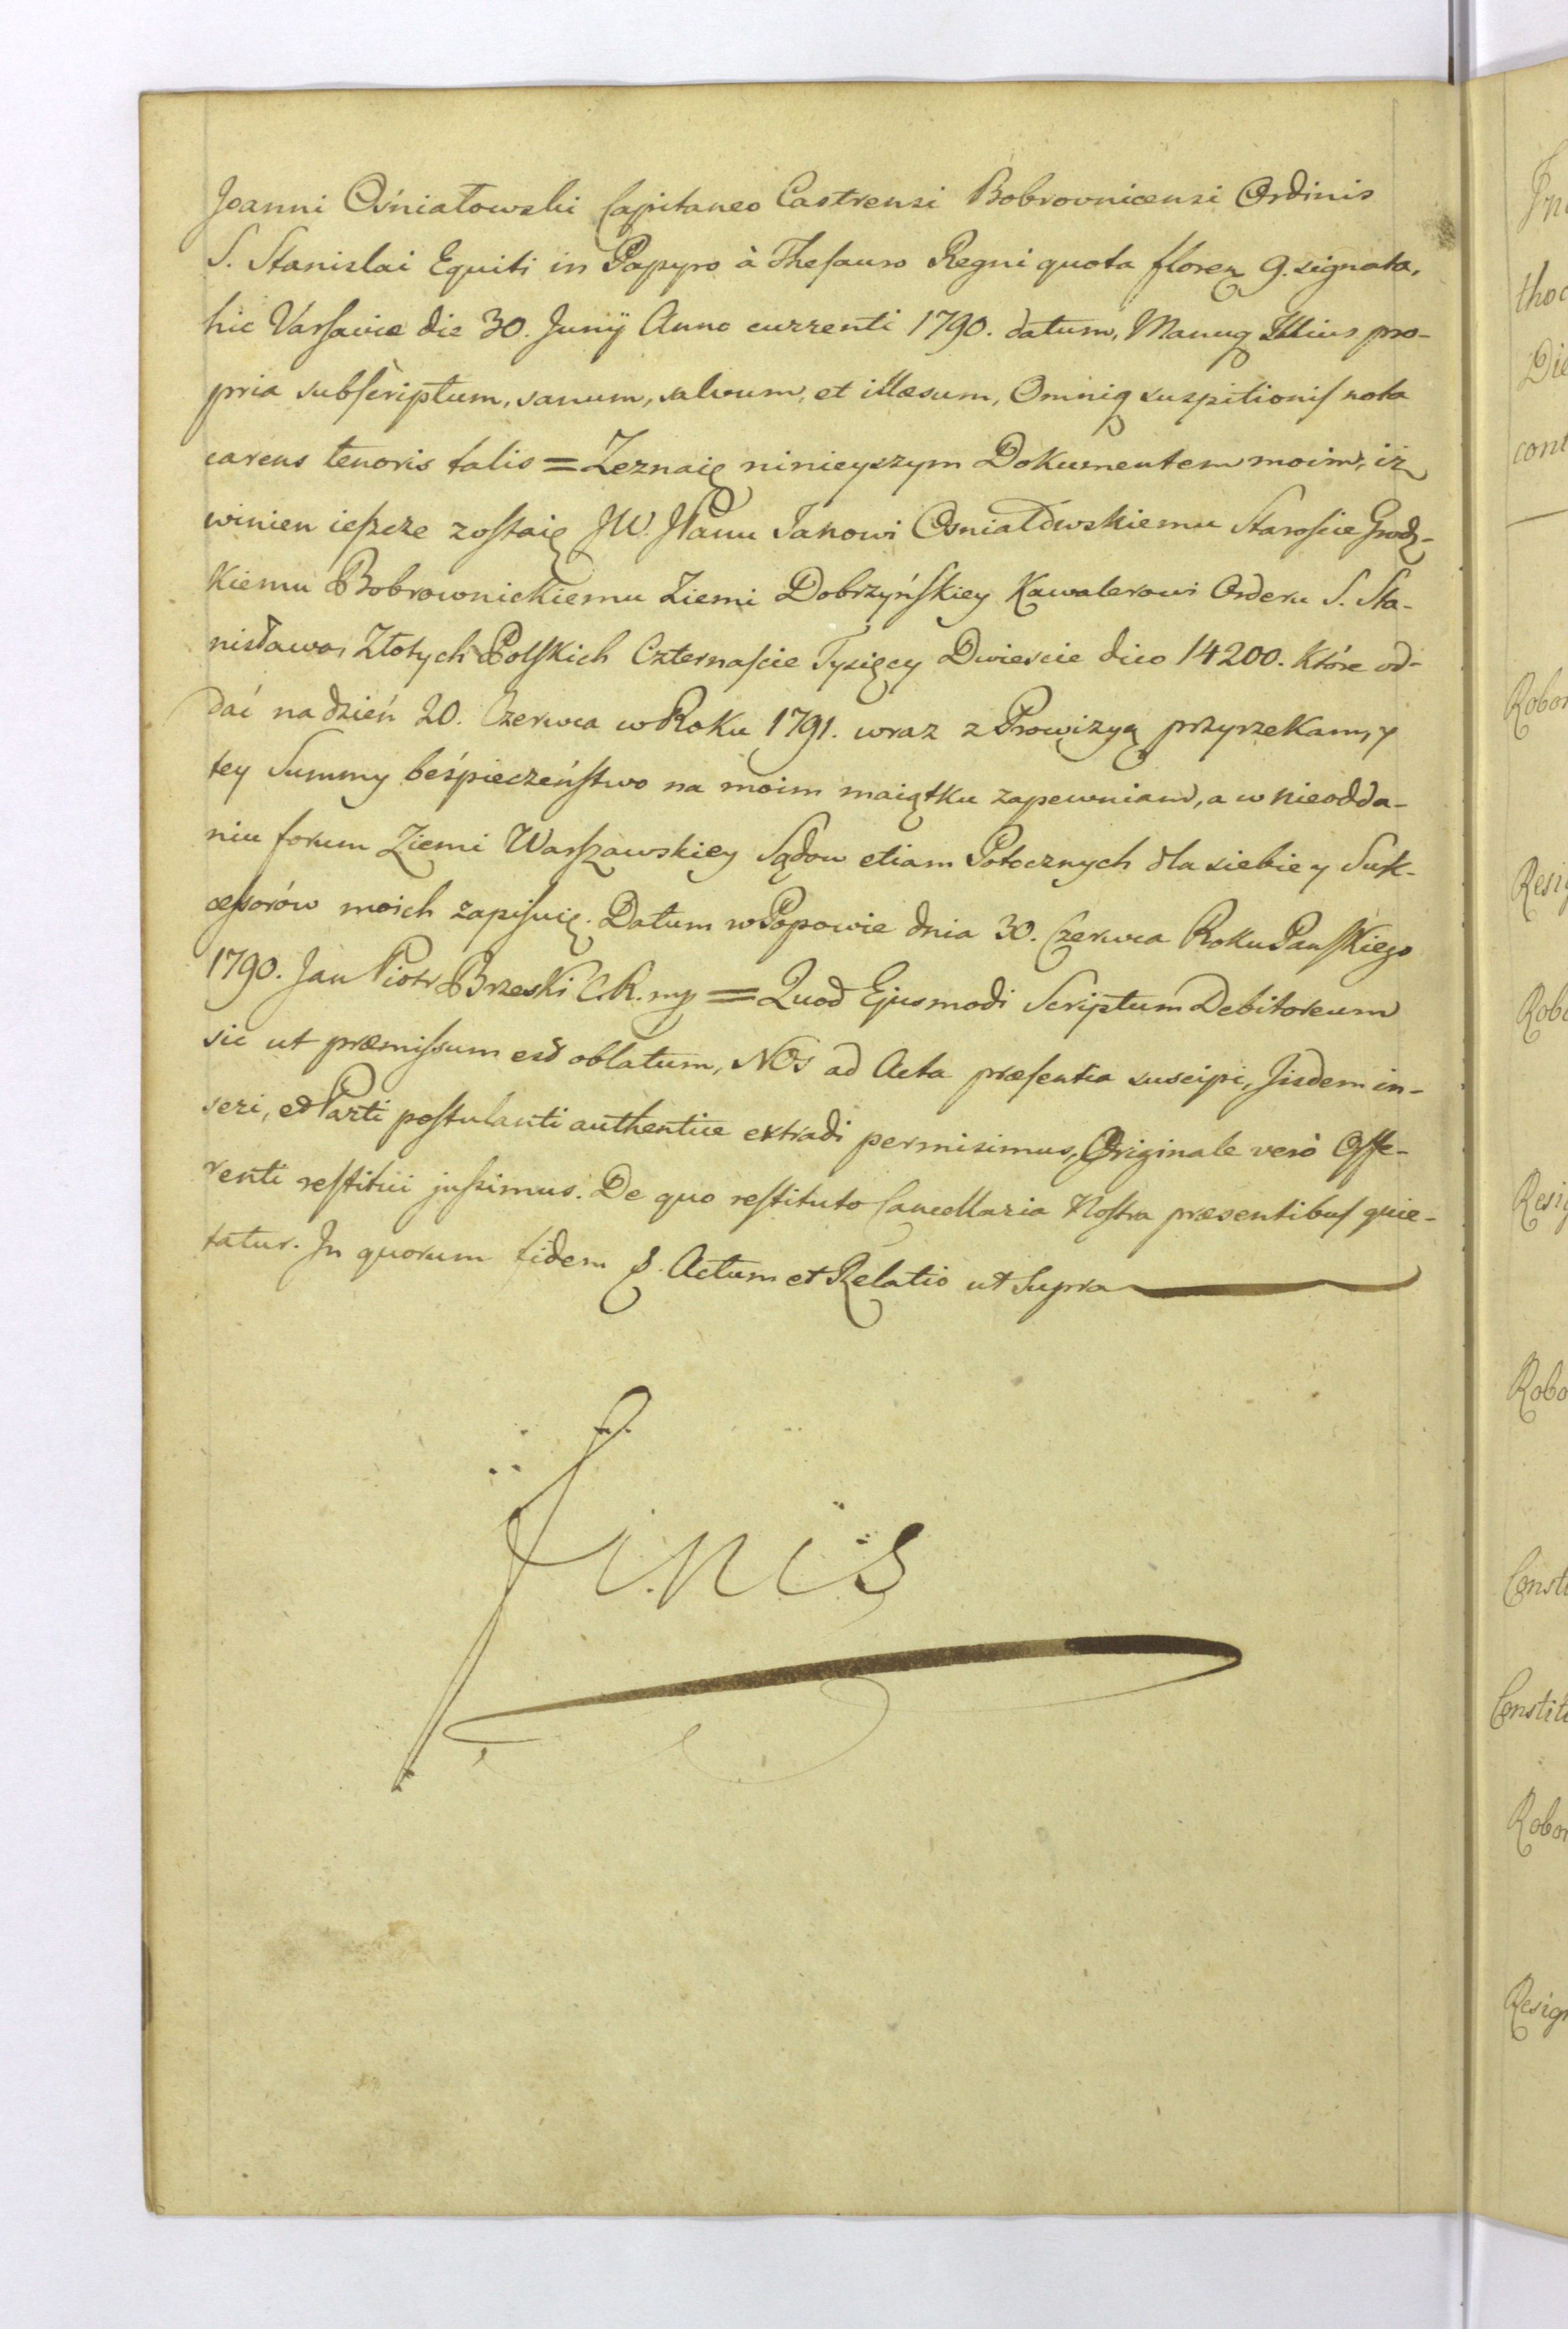 Joanni Ośniałowski Capitaneo Castrensi Bobrovnicensi Ordinis
S. Stanislai Equiti in Papyro à Thesauro Regni quota floren 9. signata,
hic Varsavia die 30. Junÿ Anno currenti 1790. datum, Manuq Illius pro-
pria subscriptum, sanum, salvum, et illæsum, Omniq suspitionis nota
carens tenoris talis = Zeznaię ninieyszym Dokumentem moim, iż
winien ieszcze zostaię JW. JPanu Janowi Ośniałowskiemu Staroście Grodz-
kiemu Bobrownickiemu Ziemi Dobrzyńskiey Kawalerowi Orderu S. Sta-
nisława, Złotych Polskich Czternaście Tysięcy Dwieście dico 14200. Które od-
dać na dzień 20. Czerwca w Roku 1791. wraz z Prowizyą przyrzekam, y
tey Summy beśpieczeństwo na moim maiątku zapewniam, a w nieodda-
niu forum Ziemi Warszawskiey Sądow etiam Potocznych dla siebie y Suk-
cessorów moich zapisuię. Datum w Popowie dnia 30. Czerwca Roku Pańskiego
1790. Jan Piotr Brzeski C. R. mp = Quod Ejusmodi Scriptum Debitoreum
sic ut præmissum est oblatum, NOs ad Acta præsentia suscipi, Jisdem in-
seri, et Parti postulanti authentice extradi permisimus, Originale verò Offe-
renti restitui jussimus. De quo restituto Cancellaria Nostra præsentibus quie-
tatur. In quorum fidem &. Actum et Relatio ut Supra
Finis
thoc
Die
cont
Robor
Resig
Robo
Resig
Robo
Const
Constit
Robor
Resign